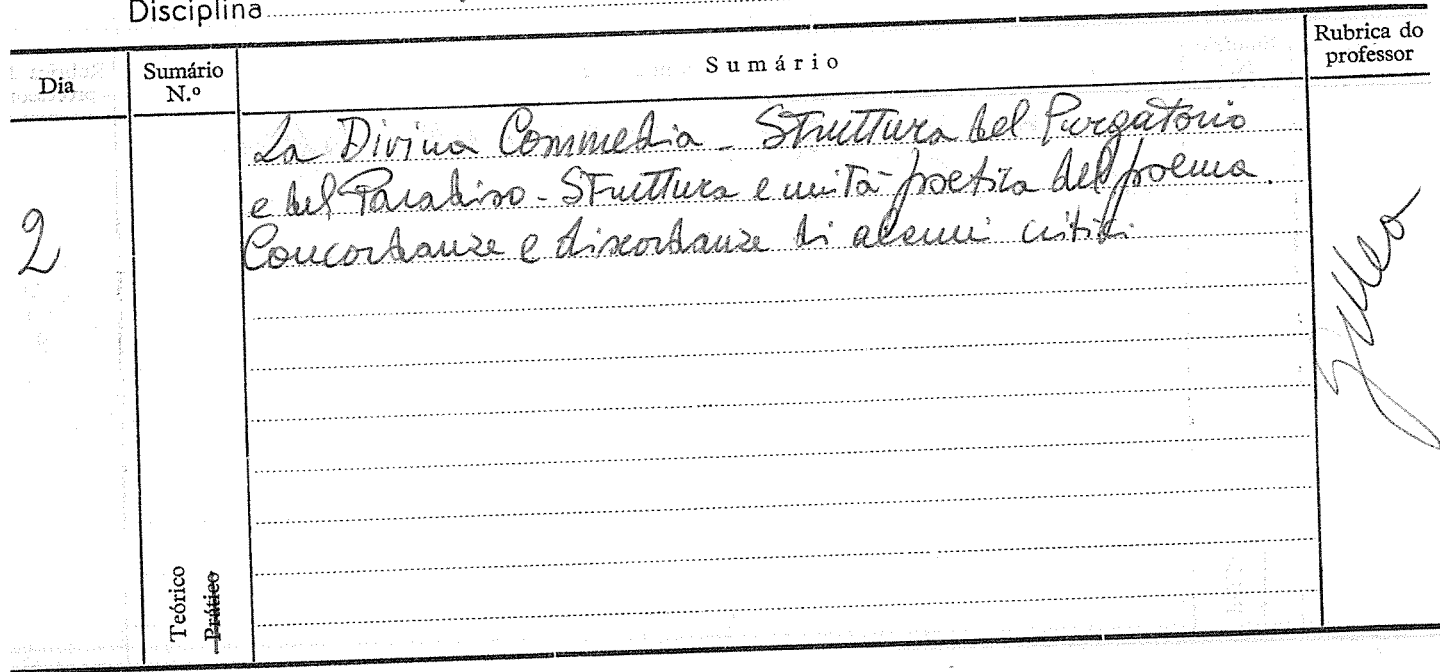 Disciplina
Dia
Sumário N.º
Sumário
Rubrica do professor
2
La Divina Commedia - Struttura del Purgatorio
e del Paradiso - Struttura e unità poetica del poema.
Concordanze e discordanze di alcuni critici.
Teórico
Prático